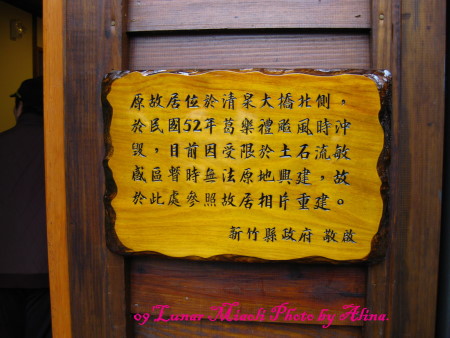 原故居位於清泉大橋北側。
於民國52年葛樂禮颱風時沖
毀，目前因受限於土石流敏
感區暫時無法原地興建，故
於此處參照故居相片重建。
新竹縣政府 敬啟
09 Lunar Miaoli Photo by Alina.